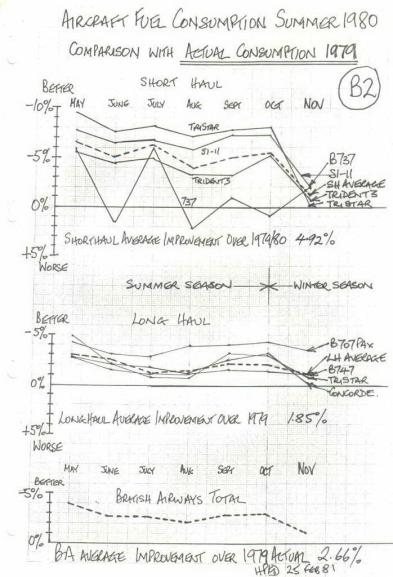 AIRCRAFT FUEL CONSUMPTION SUMMER 1980
COMPARISON WITH ACTUAL CONSUMPTION 1979
B2
BETTER
SHORT HAUL
-10%
MAY JUNE JULY AUG SEPT OCT NOV
TRISTAR
S1-11
-5%
TRIDENT3
737
B737
S1-11
SH AVERAGE
TRIDENT3
TRISTAR
0%
SHORTHAUL AVERAGE IMPROVEMENT OVER 1979/80 4.92%
+5%
WORSE
SUMMER SEASON WINTER SEASON
BETTER
LONG HAUL
-5%
B707 PAX
LH AVERAGE
B747
TRISTAR
CONCORDE.
0%
LONGHAUL AVERAGE IMPROVEMENT OVER 1979 1.85%
+5%
WORSE
MAY JUNE JULY AUG SEPT OCT NOV
BETTER
-5%
BRITISH AIRWAYS TOTAL
0%
BA AVERAGE IMPROVEMENT OVER 1979 ACTUAL 2.66%
25 FEB 81